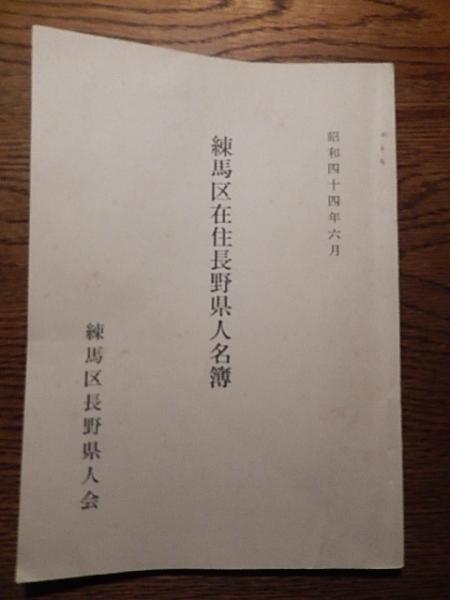 昭和四十四年六月
練馬区在住長野県人名簿
練馬区長野県人会